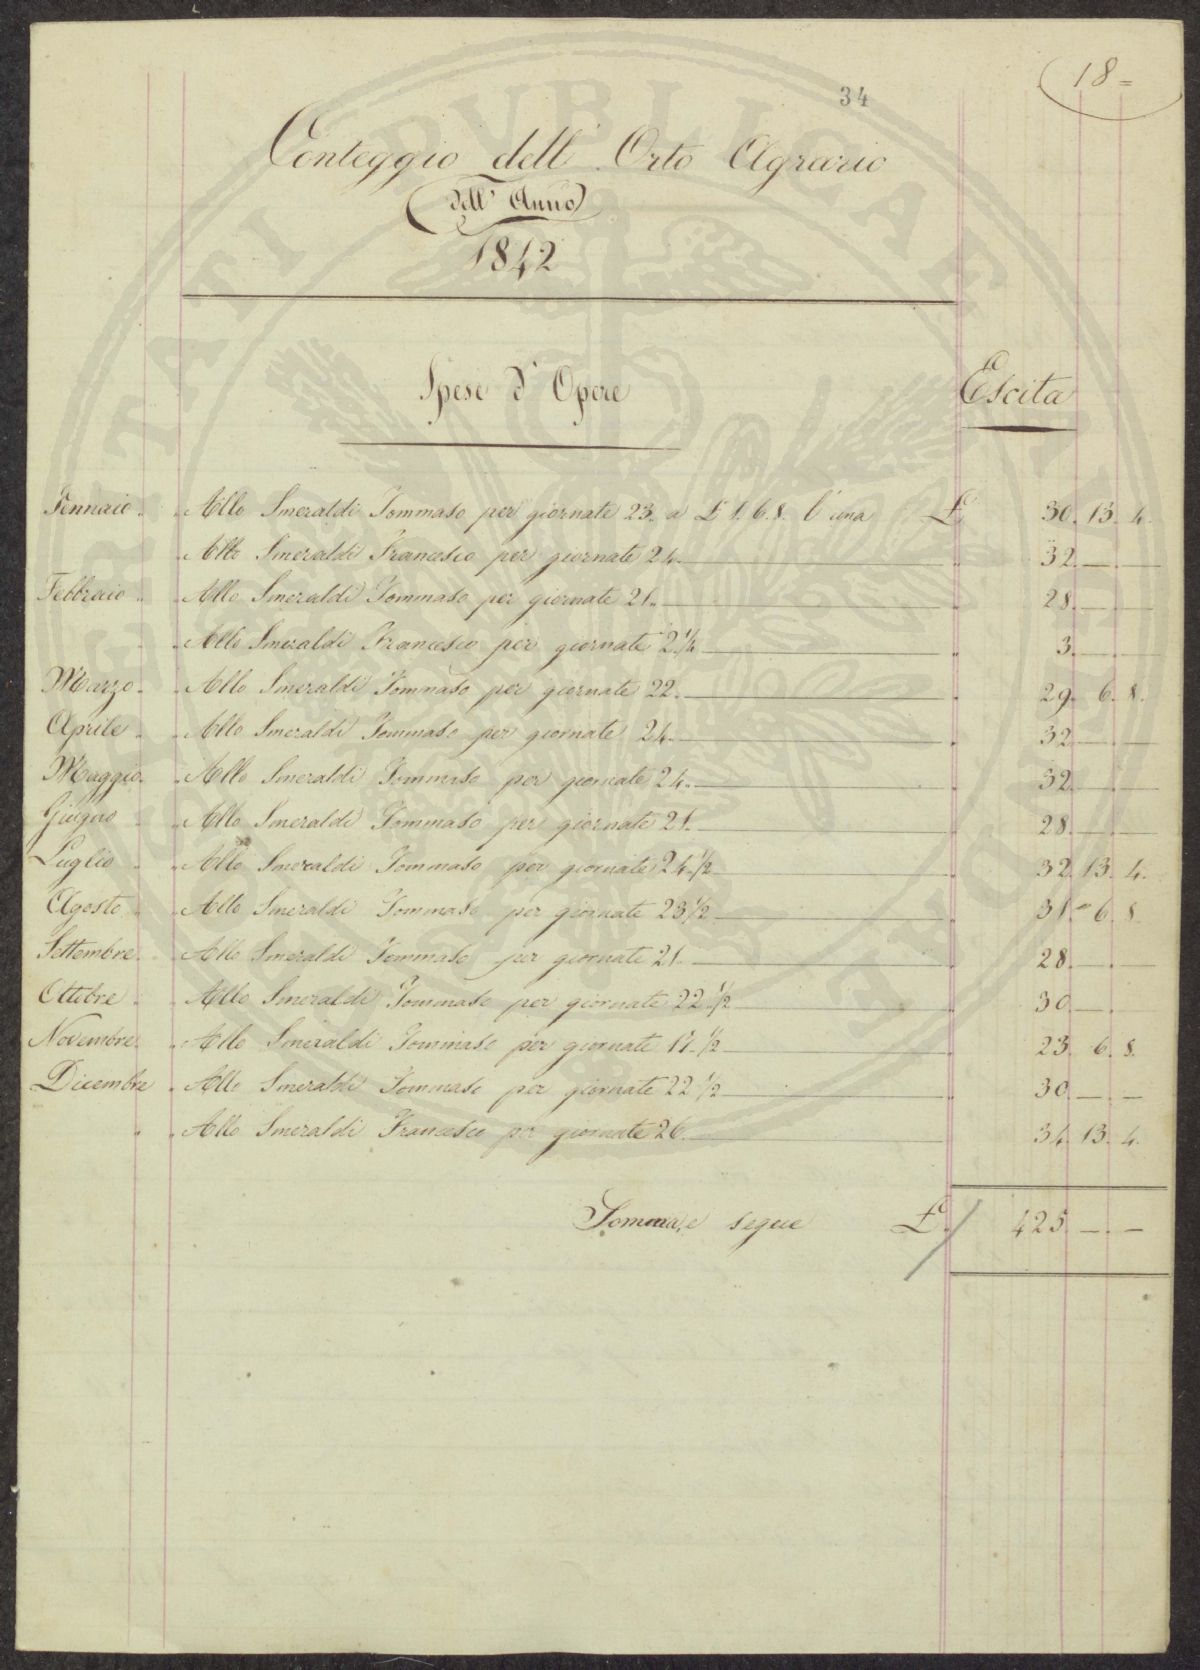 18=
34
Conteggio dell' Orto Agrario
dell' Anno
1842
Spese d' Opere Escita
Gennaio " " Allo Smeraldi Tommaso per giornate 23. a £ 1. 6. 8. l' una £ 30. 13. 4.
" Allo Smeraldi Francesco per giornate 24. " 32. — —
Febbraio " " Allo Smeraldi Tommaso per giornate 21. " 28. — —
" " Allo Smeraldi Francesco per giornate 2 1/4 " 3. — —
Marzo " " Allo Smeraldi Tommaso per giornate 22. " 29. 6. 8.
Aprile " " Allo Smeraldi Tommaso per giornate 24. " 32. — —
Maggio " " Allo Smeraldi Tommaso per giornate 24. " 32. — —
Giugno " " Allo Smeraldi Tommaso per giornate 21. " 28. — —
Luglio " " Allo Smeraldi Tommaso per giornate 24. 1/2 " 32. 13. 4.
Agosto " " Allo Smeraldi Tommaso per giornate 23 1/2 " 31 " 6. 8.
Settembre " " Allo Smeraldi Tommaso per giornate 21. " 28. — —
Ottobre " " Allo Smeraldi Tommaso per giornate 22. 1/2 " 30. — —
Novembre " " Allo Smeraldi Tommaso per giornate 17. 1/2 " 23. 6. 8.
Dicembre " Allo Smeraldi Tommaso per giornate 22 1/2 " 30. — —
" " Allo Smeraldi Francesco per giornate 26. " 34. 13. 4.
Somma, e segue £. 425. — —